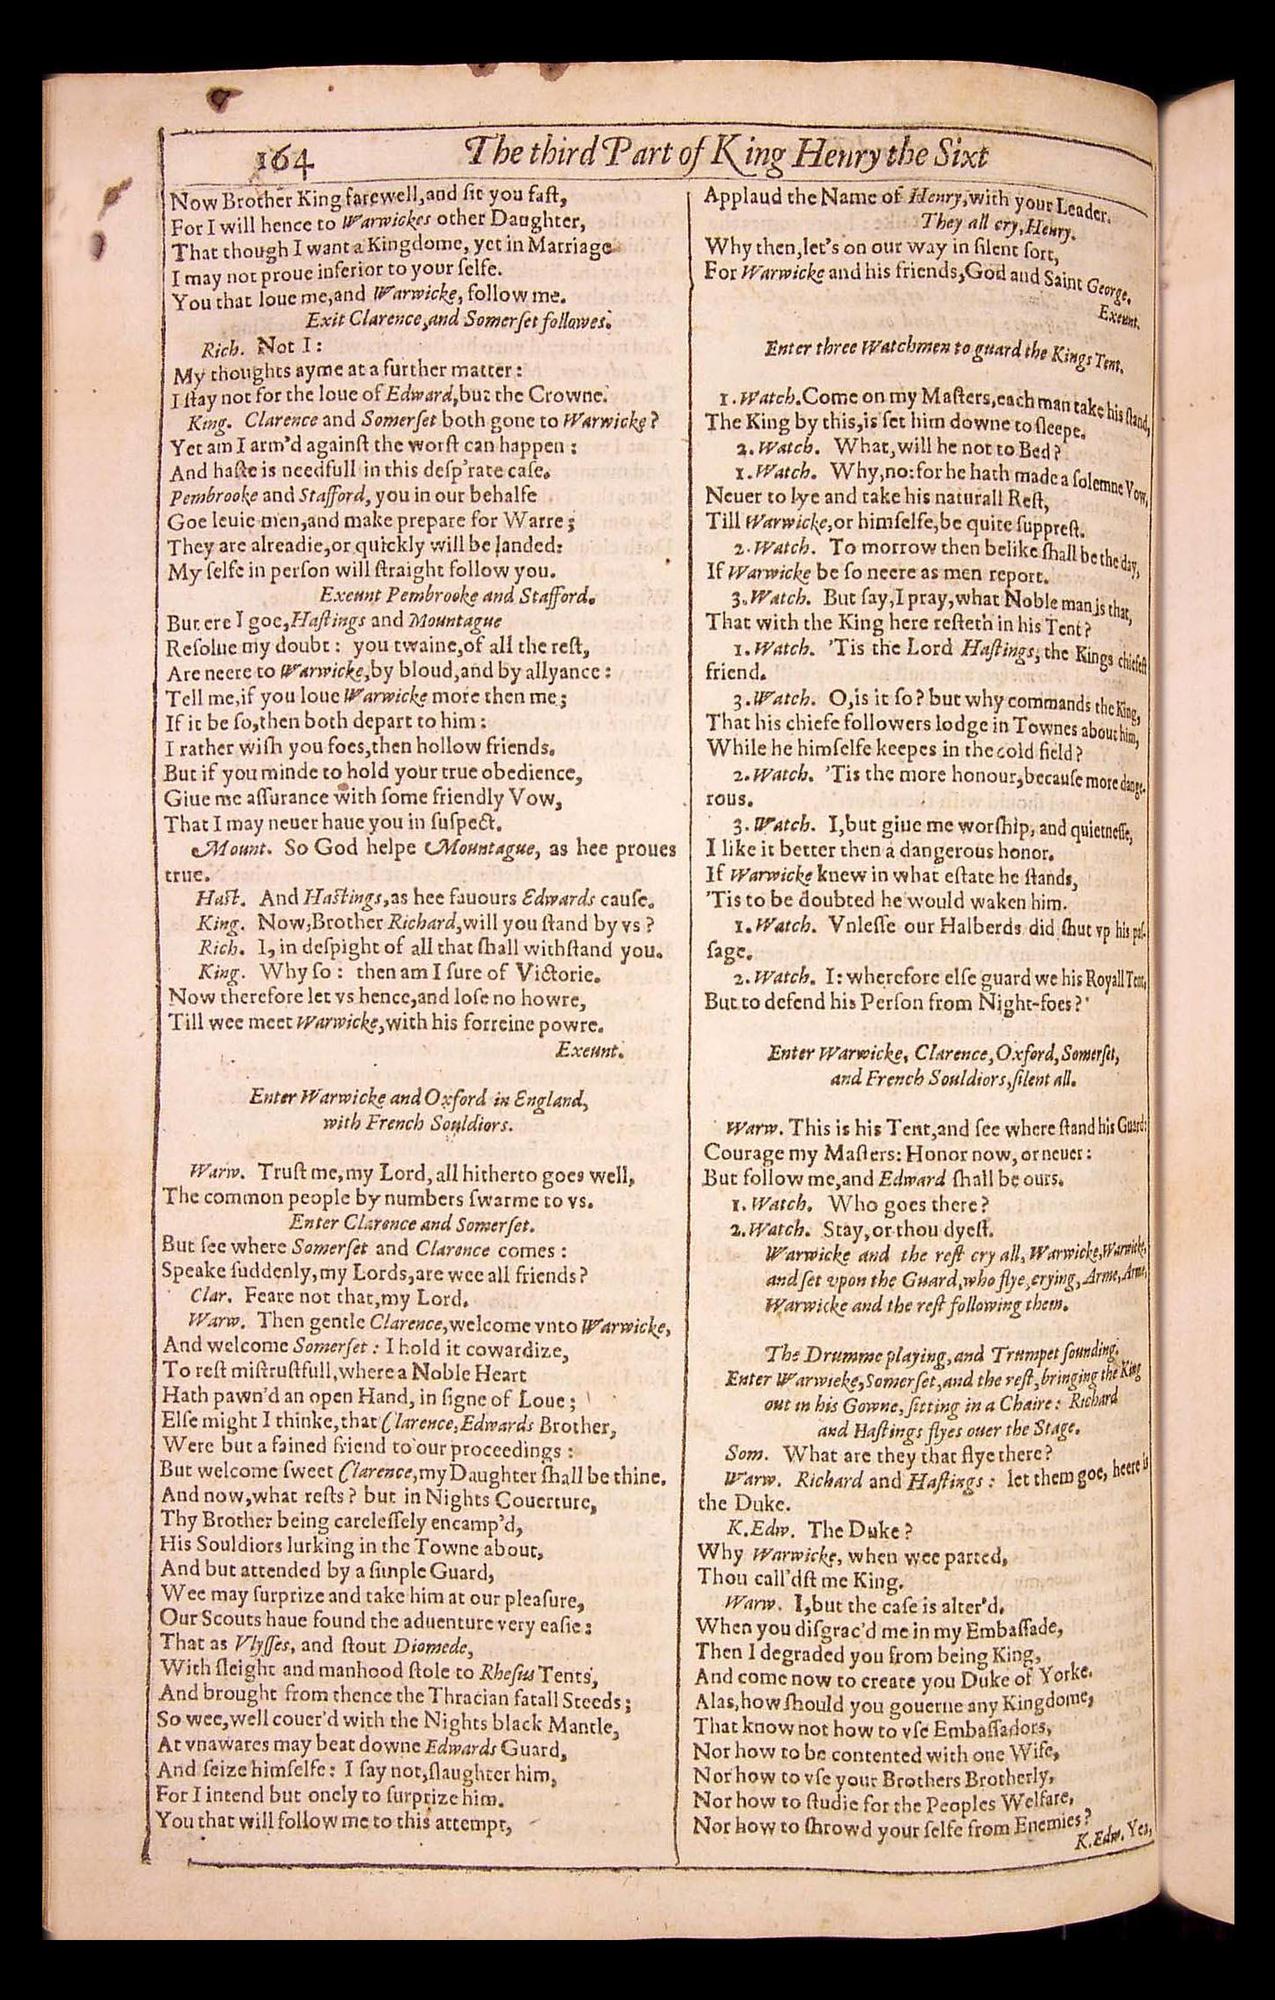 164
The third Part of King Henry the Sixt
Now Brother King farewell,and ſit you faſt,
For I will hence to Warwickes other Daughter,
That though I want a Kingdome, yet in Marriage
I may not proue inferior to your ſelfe.
You that loue me,and Warwicke, follow me.
Exit Clarence,and Somerſet followes.
Rich. Not I:
My thoughts ayme at a further matter:
I ſtay not for the loue of Edward,but the Crowne.
King. Clarence and Somerſet both gone to Warwicke?
Yet am I arm'd againſt the worſt can happen:
And haſte is needfull in this deſp'rate caſe.
Pembrooke and Stafford, you in our behalfe
Goe leuie men,and make prepare for Warre;
They are alreadie,or quickly will be landed:
My ſelfe in perſon will ſtraight follow you.
Exeunt Pembrooke and Stafford.
But ere I goe,Haſtings and Mountague
Reſolue my doubt: you twaine,of all the reſt,
Are neere to Warwicke,by bloud,and by allyance:
Tell me,if you loue Warwicke more then me;
If it be ſo,then both depart to him:
I rather wiſh you foes,then hollow friends.
But if you minde to hold your true obedience,
Giue me aſſurance with ſome friendly Vow,
That I may neuer haue you in ſuſpect.
Mount. So God helpe Mountague, as hee proues
true.
Haſt. And Haſtings,as hee fauours Edwards cauſe.
King. Now,Brother Richard,will you ſtand by vs?
Rich. I, in deſpight of all that ſhall withſtand you.
King. Why ſo: then am I ſure of Victorie.
Now therefore let vs hence,and loſe no howre,
Till wee meet Warwicke,with his forreine powre.
Exeunt.
Enter Warwicke and Oxford in England,
with French Souldiors.
Warw. Truſt me,my Lord, all hitherto goes well,
The common people by numbers ſwarme to vs.
Enter Clarence and Somerſet.
But ſee where Somerſet and Clarence comes:
Speake ſuddenly,my Lords,are wee all friends?
Clar. Feare not that,my Lord.
Warw. Then gentle Clarence,welcome vnto Warwicke,
And welcome Somerſet: I hold it cowardize,
To reſt miſtruſtfull,where a Noble Heart
Hath pawn'd an open Hand, in ſigne of Loue;
Elſe might I thinke,that Clarence,Edwards Brother,
Were but a fained friend to our proceedings:
But welcome ſweet Clarence,my Daughter ſhall be thine.
And now,what reſts? but in Nights Couerture,
Thy Brother being careleſſely encamp'd,
His Souldiors lurking in the Towne about,
And but attended by a ſimple Guard,
Wee may ſurprize and take him at our pleaſure,
Our Scouts haue found the aduenture very eaſie:
That as Vlyſſes, and ſtout Diomede,
With ſleight and manhood ſtole to Rheſus Tents,
And brought from thence the Thracian fatall Steeds;
So wee,well couer'd with the Nights black Mantle,
At vnawares may beat downe Edwards Guard,
And ſeize himſelfe: I ſay not,ſlaughter him,
For I intend but onely to ſurprize him.
You that will follow me to this attempt,
Applaud the Name of Henry,with your Leader.
They all cry,Henry.
Why then,let's on our way in ſilent ſort,
For Warwicke and his friends,God and Saint George.
Exeunt.
Enter three Watchmen to guard the Kings Tent.
1.Watch.Come on my Maſters,each man take his ſtand,
The King by this,is ſet him downe to ſleepe.
2.Watch. What,will he not to Bed?
1.Watch. Why,no:for he hath made a ſolemne Vow,
Neuer to lye and take his naturall Reſt,
Till Warwicke,or himſelfe,be quite ſuppreſt.
2.Watch. To morrow then belike ſhall be the day,
If Warwicke be ſo neere as men report.
3.Watch. But ſay,I pray,what Noble man is that,
That with the King here reſteth in his Tent?
1.Watch. 'Tis the Lord Haſtings, the Kings chiefeſt
friend.
3.Watch. O,is it ſo? but why commands the King,
That his chiefe followers lodge in Townes about him,
While he himſelfe keepes in the cold field?
2.Watch. 'Tis the more honour,becauſe more dange-
rous.
3.Watch. I,but giue me worſhip, and quietneſſe,
I like it better then a dangerous honor.
If Warwicke knew in what eſtate he ſtands,
'Tis to be doubted he would waken him.
1.Watch. Vnleſſe our Halberds did ſhut vp his paſ-
ſage.
2.Watch. I: wherefore elſe guard we his Royall Tent,
But to defend his Perſon from Night-foes?
Enter Warwicke, Clarence,Oxford,Somerſet,
and French Souldiors,ſilent all.
Warw. This is his Tent,and ſee where ſtand his Guard:
Courage my Maſters: Honor now, or neuer:
But follow me,and Edward ſhall be ours.
1.Watch. Who goes there?
2.Watch. Stay,or thou dyeſt.
Warwicke and the reſt cry all, Warwicke,Warwicke,
and ſet vpon the Guard,who flye,crying, Arme,Arme,
Warwicke and the reſt following them.
The Drumme playing,and Trumpet ſounding.
Enter Warwicke,Somerſet,and the reſt,bringing the King
out in his Gowne,ſitting in a Chaire: Richard
and Haſtings flyes ouer the Stage.
Som. What are they that flye there?
Warw. Richard and Haſtings: let them goe, heere is
the Duke.
K.Edw. The Duke?
Why Warwicke, when wee parted,
Thou call'dſt me King.
Warw. I,but the caſe is alter'd.
When you diſgrac'd me in my Embaſſade,
Then I degraded you from being King,
And come now to create you Duke of Yorke.
Alas,how ſhould you gouerne any Kingdome,
That know not how to vſe Embaſſadors,
Nor how to be contented with one Wife,
Nor how to vſe your Brothers Brotherly,
Nor how to ſtudie for the Peoples Welfare,
Nor how to ſhrowd your ſelfe from Enemies?
K.Edw. Yea,